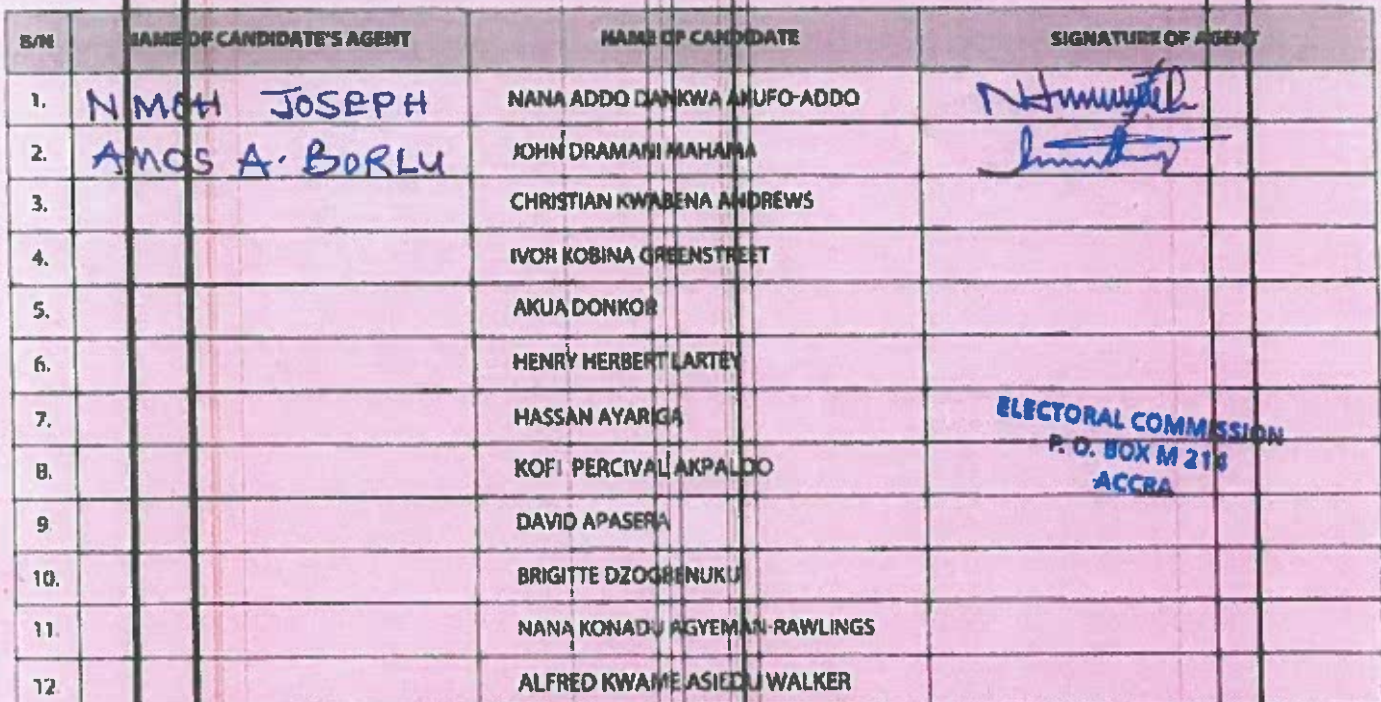 S/N NAME OF CANDIDATE'S AGENT NAME OF CANDIDATE SIGNATURE OF AGENT
1. NIMOH JOSEPH NANA ADDO DANKWA AKUFO-ADDO
2. AMOS A. BORLU JOHN DRAMANI MAHAMA
3. CHRISTIAN KWABENA ANDREWS
4. IVOR KOBINA GREENSTREET
5. AKUA DONKOR
6. HENRY HERBERT LARTEY
7. HASSAN AYARIGA
8. KOFI PERCIVAL AKPALOO
9. DAVID APASERA
10. BRIGITTE DZOGBENUKU
11. NANA KONADU AGYEMAN-RAWLINGS
12. ALFRED KWAME ASIEDU WALKER
ELECTORAL COMMISSION
P. O. BOX M 214
ACCRA